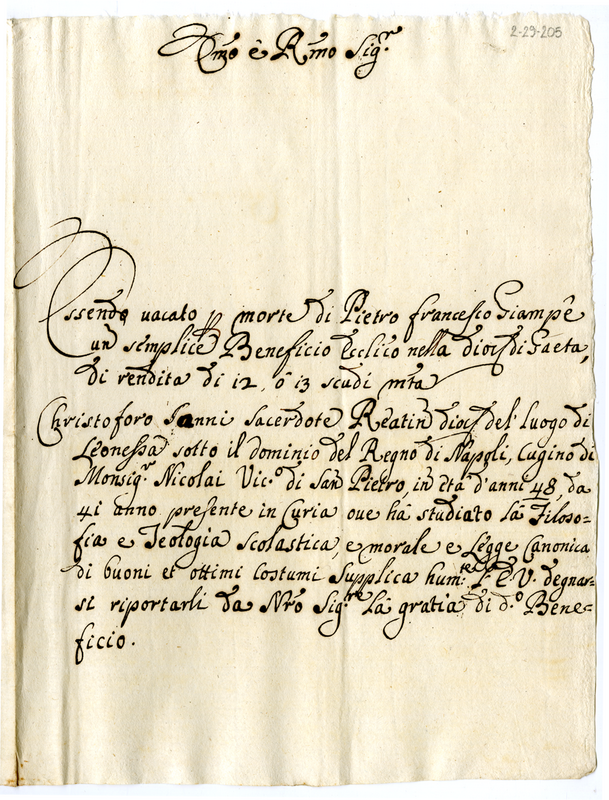 2-29-205
Emo è Rmo Sig.r
Essendo uacato p morte di Pietro francesco Giampè
un semplice Beneficio Ecclico nella dioc di Gaeta,
di rendita di 12, ò 13 scudi mta
Christoforo Ianni sacerdote Reatin dioc del luogo di
Leonessa sotto il dominio del Regno di Napoli, Cugino di
Monsig.r Nicolai Vic.o di San Pietro, in età d'anni 48, da
41 anno presente in Curia oue hà studiato la Filoso=
fia e Teologia scolastica, e morale e Legge Canonica
di buoni et ottimi costumi supplica hum.te l'E V. degnar=
si riportarli da Nro Sig.re la gratia di d.o Bene=
ficio.